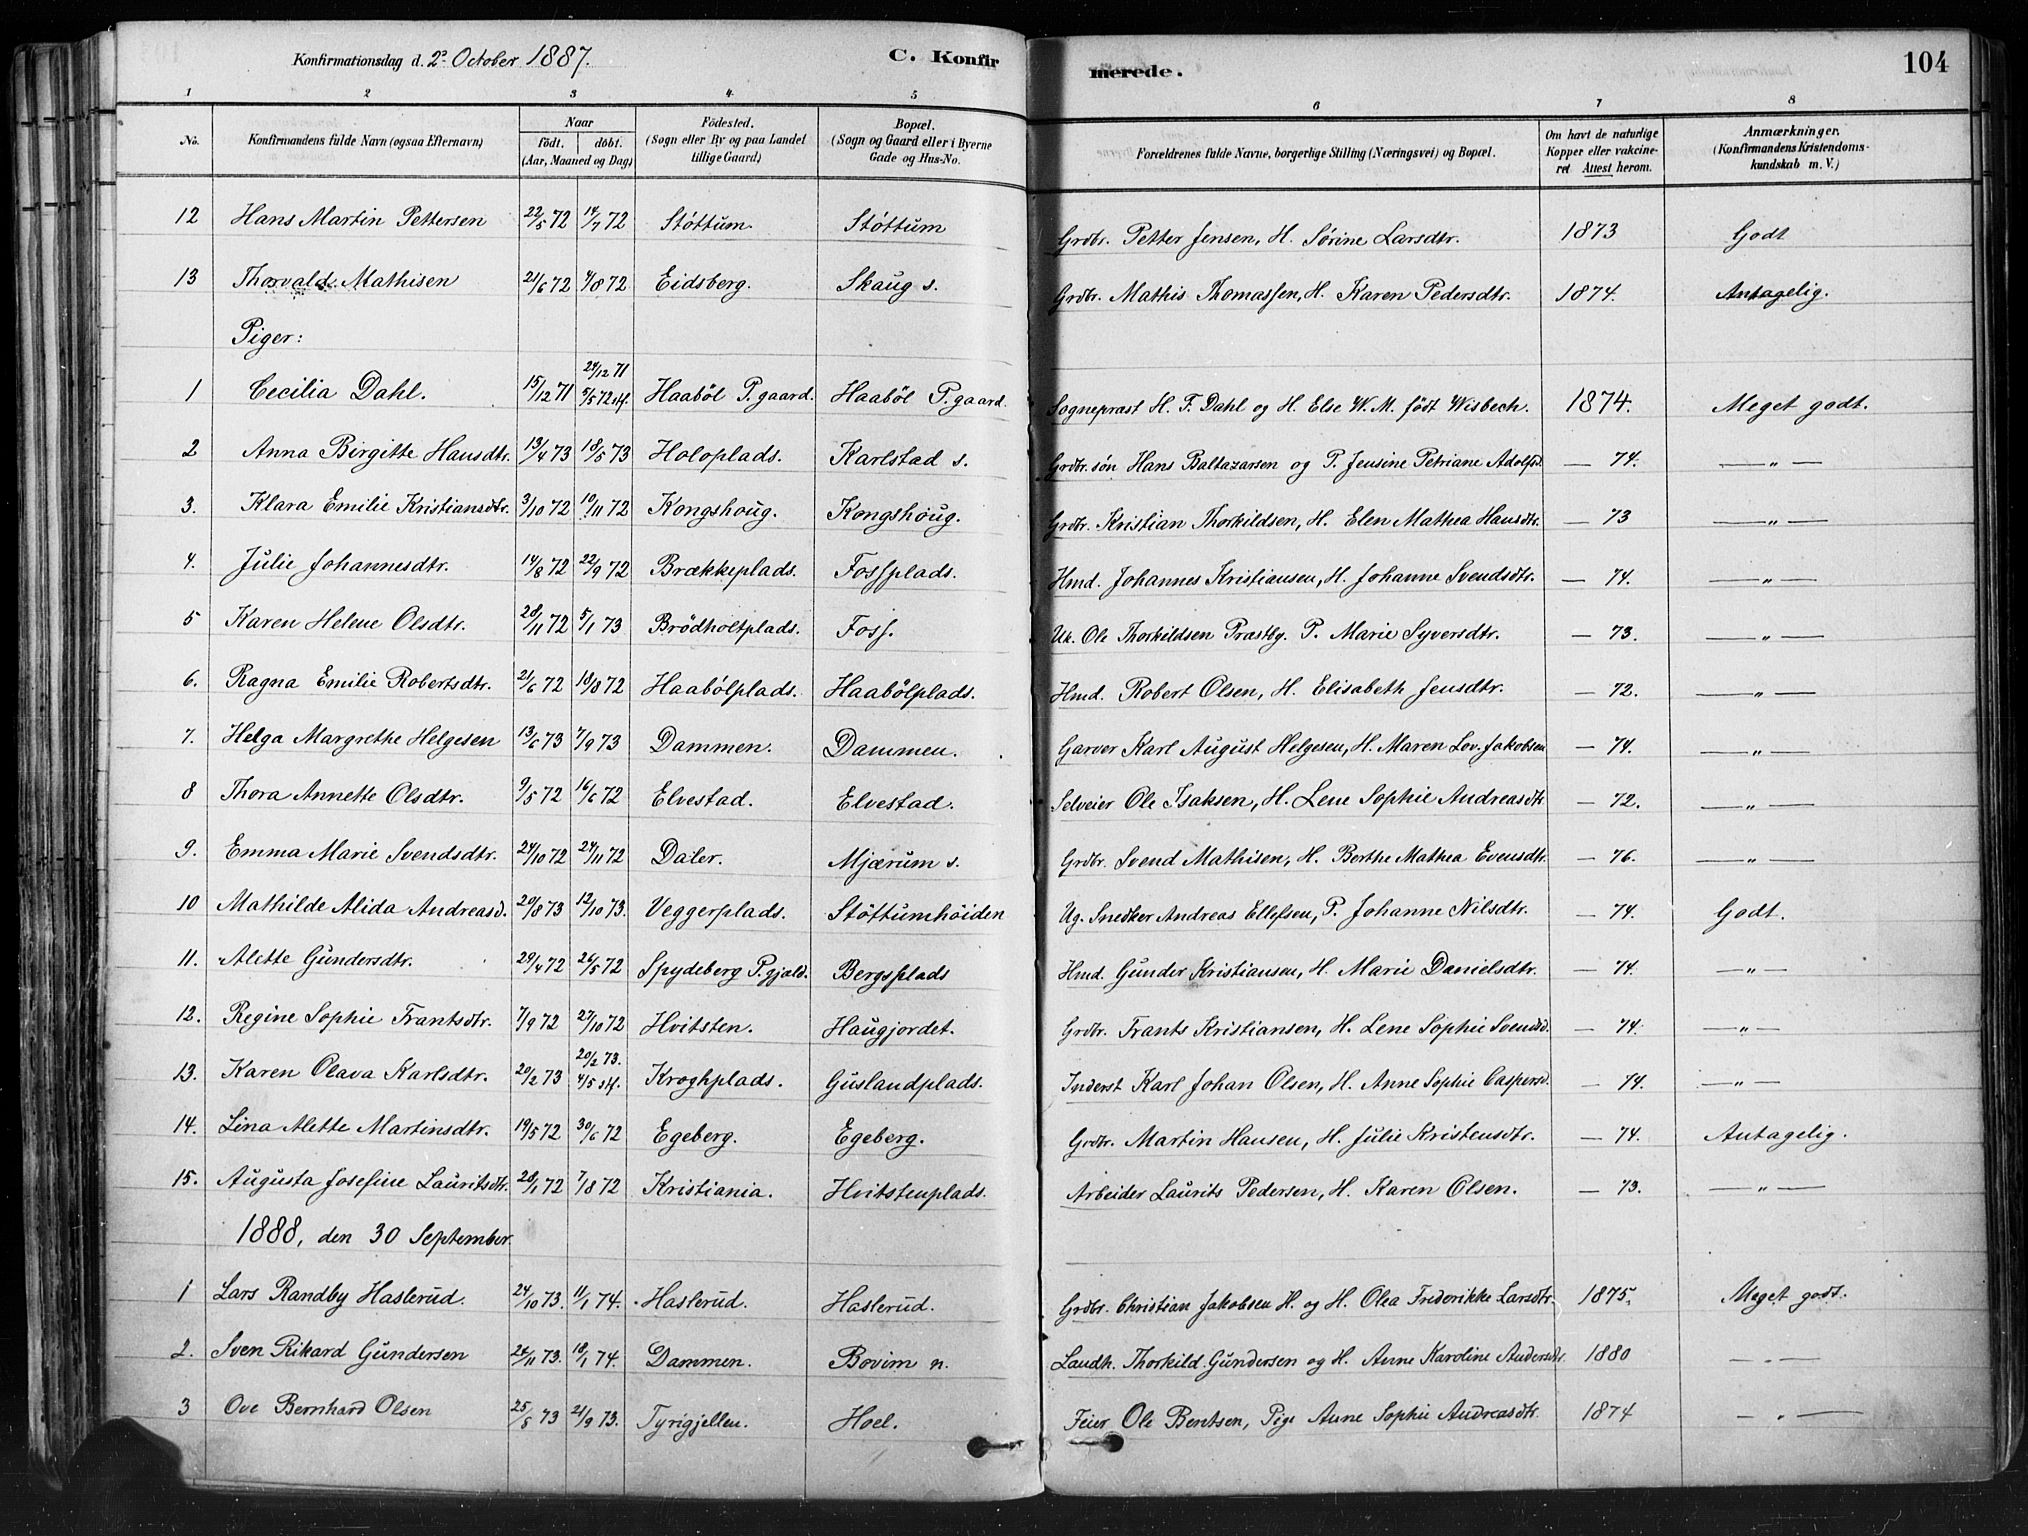 Konfirmationsdag d. 2den October 1887. C. Konfirmerede. 104
1 2 3 4 5 6 7 8
No. Konfirmandens fulde Navn (ogsaa Efternavn) Naar födt. döbt. (Aar, Maaned og Dag) Födested. (Sogn eller By og paa Landet tillige Gaard) Bopæl. (Sogn og Gaard eller i Byerne Gade og Hus-No.) Forældrenes fulde Navne, borgerlige Stilling (Næringsvei) og Bopæl. Om havt de naturlige Kopper eller vakcineret Attest herom. Anmærkninger. (Konfirmandens Kristendomskundskab m. V.)
12 Hans Martin Pettersen 22/5 72 14/7 72 Støttum. Støttum Grdbr. Petter Jensen, H. Sørine Larsdtr. 1873 Godt
13 Thorvald Mathisen 21/6 72 4/8 72 Eidsberg. Skaug s. Grdbr. Mathis Thomassen, H. Karen Pedersdtr. 1874. Antagelig.
Piger:
1 Cecilia Dahl. 15/12 71 24/12 71 5/5 72 st. Haaböl P.gaard. Haaböl P.gaard. Sogneprest H. F. Dahl og H. Else W. M. født Wisbech. 1874. Meget godt.
2 Anna Birgitte Hansdtr. 13/4 73 18/5 73 Holoplads. Karlstad s. Grdbr.søn Hans Baltazarsen og P. Jensine Petriane Adolfsd. — 74. —"—
3. Klara Emilie Kristiansdtr. 3/10 72 10/11 72 Kongshoug. Kongshoug. Grdbr. Kristian Thorkildsen, H. Elen Mathea Hansdtr. — 73 —"—
4. Julie Johannesdtr. 14/8 72 22/9 72 Brækkeplads. Fossplads. Hmd. Johannes Kristiansen, H. Johanne Svendsdtr. — 74. —"—
5 Karen Helene Olsdtr. 28/11 72 5/1 73 Brödholtplads. Foss. Uk. Ole Thorkildsen Præstbg. P. Marie Syversdtr. — 73. —"—
6. Ragna Emilie Robertsdtr. 21/6 72 18/8 72 Haabölplads. Haabölplads. Hmd. Robert Olsen, H. Elisabeth Jensdtr. — 72. —"—
7. Helga Margrethe Helgesen 13/6 73 7/9 73 Dammen. Dammen. Garver Karl August Helgesen, H. Maren Lov. Jakobsen — 74. —"—
8 Thora Annette Olsdtr. 9/5 72 16/6 72 Elvestad. Elvestad. Selveier Ole Isaksen, H. Lene Sophie Andreasdtr. — 72. —"—
9. Emma Marie Svendsdtr. 24/10 72 24/11 72 Daler. Mjærum s. Grdbr. Svend Mathisen, H. Berthe Mathea Evensdtr. — 76. —"—
10 Mathilde Alida Andreasd. 20/8 73 12/10 73. Veggerplads. Stöttumhöiden Ug. Snedker Andreas Ellefsen, P. Johanne Nilsdtr. — 74. Godt.
11. Alette Gundersdtr. 29/4 72 26/5 72 Spydeberg P.gjæld. Bergsplads Hmd. Gunder Kristiansen, H. Marie Danielsdtr. — 74. —"—
12. Regine Sophie Frantsdtr. 7/9 72 27/10 72 Hvitsten. Haugjordet. Grdbr. Frants Kristiansen, H. Lene Sophie Svendsd. — 74. —"—
13. Karen Olava Karlsdtr. 20/2 73 20/2 73. 4/5 st. Kroghplads. Guslandplads. Inderst Karl Johan Olsen, H. Anne Sophie Caspersd. — 74. —"—
14. Lina Alette Martinsdtr. 19/5 72 30/6 72 Egeberg. Egeberg. Grdbr. Martin Hansen, H. Julie Kristensdtr. — 74. Antagelig.
15. Augusta Josefine Lauritsdtr. 28/1 72 7/8 72 Kristiania. Hvitstenplads. Arbeider Laurits Pedersen, H. Karen Olsen. — 73. —"—
1888, den 30 September.
1 Lars Randby Haslerud. 24/10 73. 11/1 74. Haslerud. Haslerud. Grdbr. Christian Jakobsen H. og H. Olea Frederikke Larsdtr. 1875. Meget godt.
2. Sven Rikard Gundersen 24/11 73. 18/1 74. Dammen. Bovim n. Landh. Thorkild Gundersen og H. Anne Karoline Andersdtr. 1880 —"—
3 Ove Bernhard Olsen 25/8 73 21/9 73. Tyrigjellen. Hoel. Feier Ole Bentsen, Pige Anne Sophie Andreasdtr. 1874 —"—